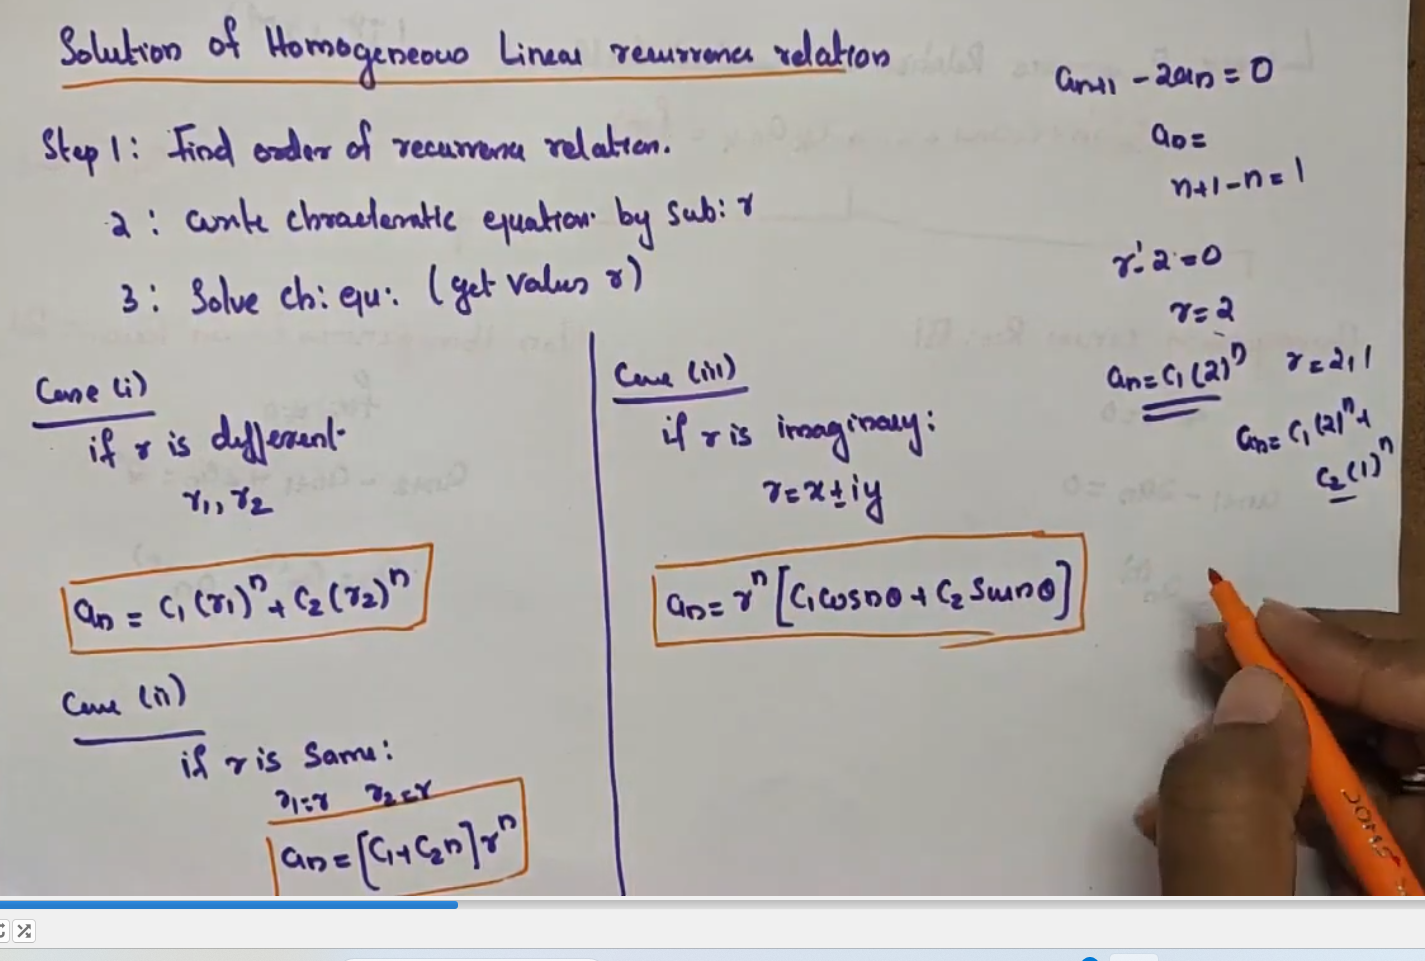 Solution of Homogeneous Linear recurrence relation
Step 1: Find order of recurrence relation.
2: write chracteristic equation by sub: r
3: Solve ch: equ: (get values r)
Case (i)
if r is different
r₁, r₂
aₙ = C₁(r₁)ⁿ + C₂(r₂)ⁿ
Case (ii)
if r is Same:
r₁=r r₂=r
aₙ = [C₁+C₂n]rⁿ
Case (iii)
if r is imaginary:
r=x±iy
aₙ= rⁿ[C₁cosnθ + C₂ Sinnθ]
aₙ₊₁ - 2aₙ = 0
a₀=
n+1-n=1
r¹-2=0
r=2
aₙ=C₁(2)ⁿ
r=2,1
aₙ= C₁(2)ⁿ+
C₂(1)ⁿ